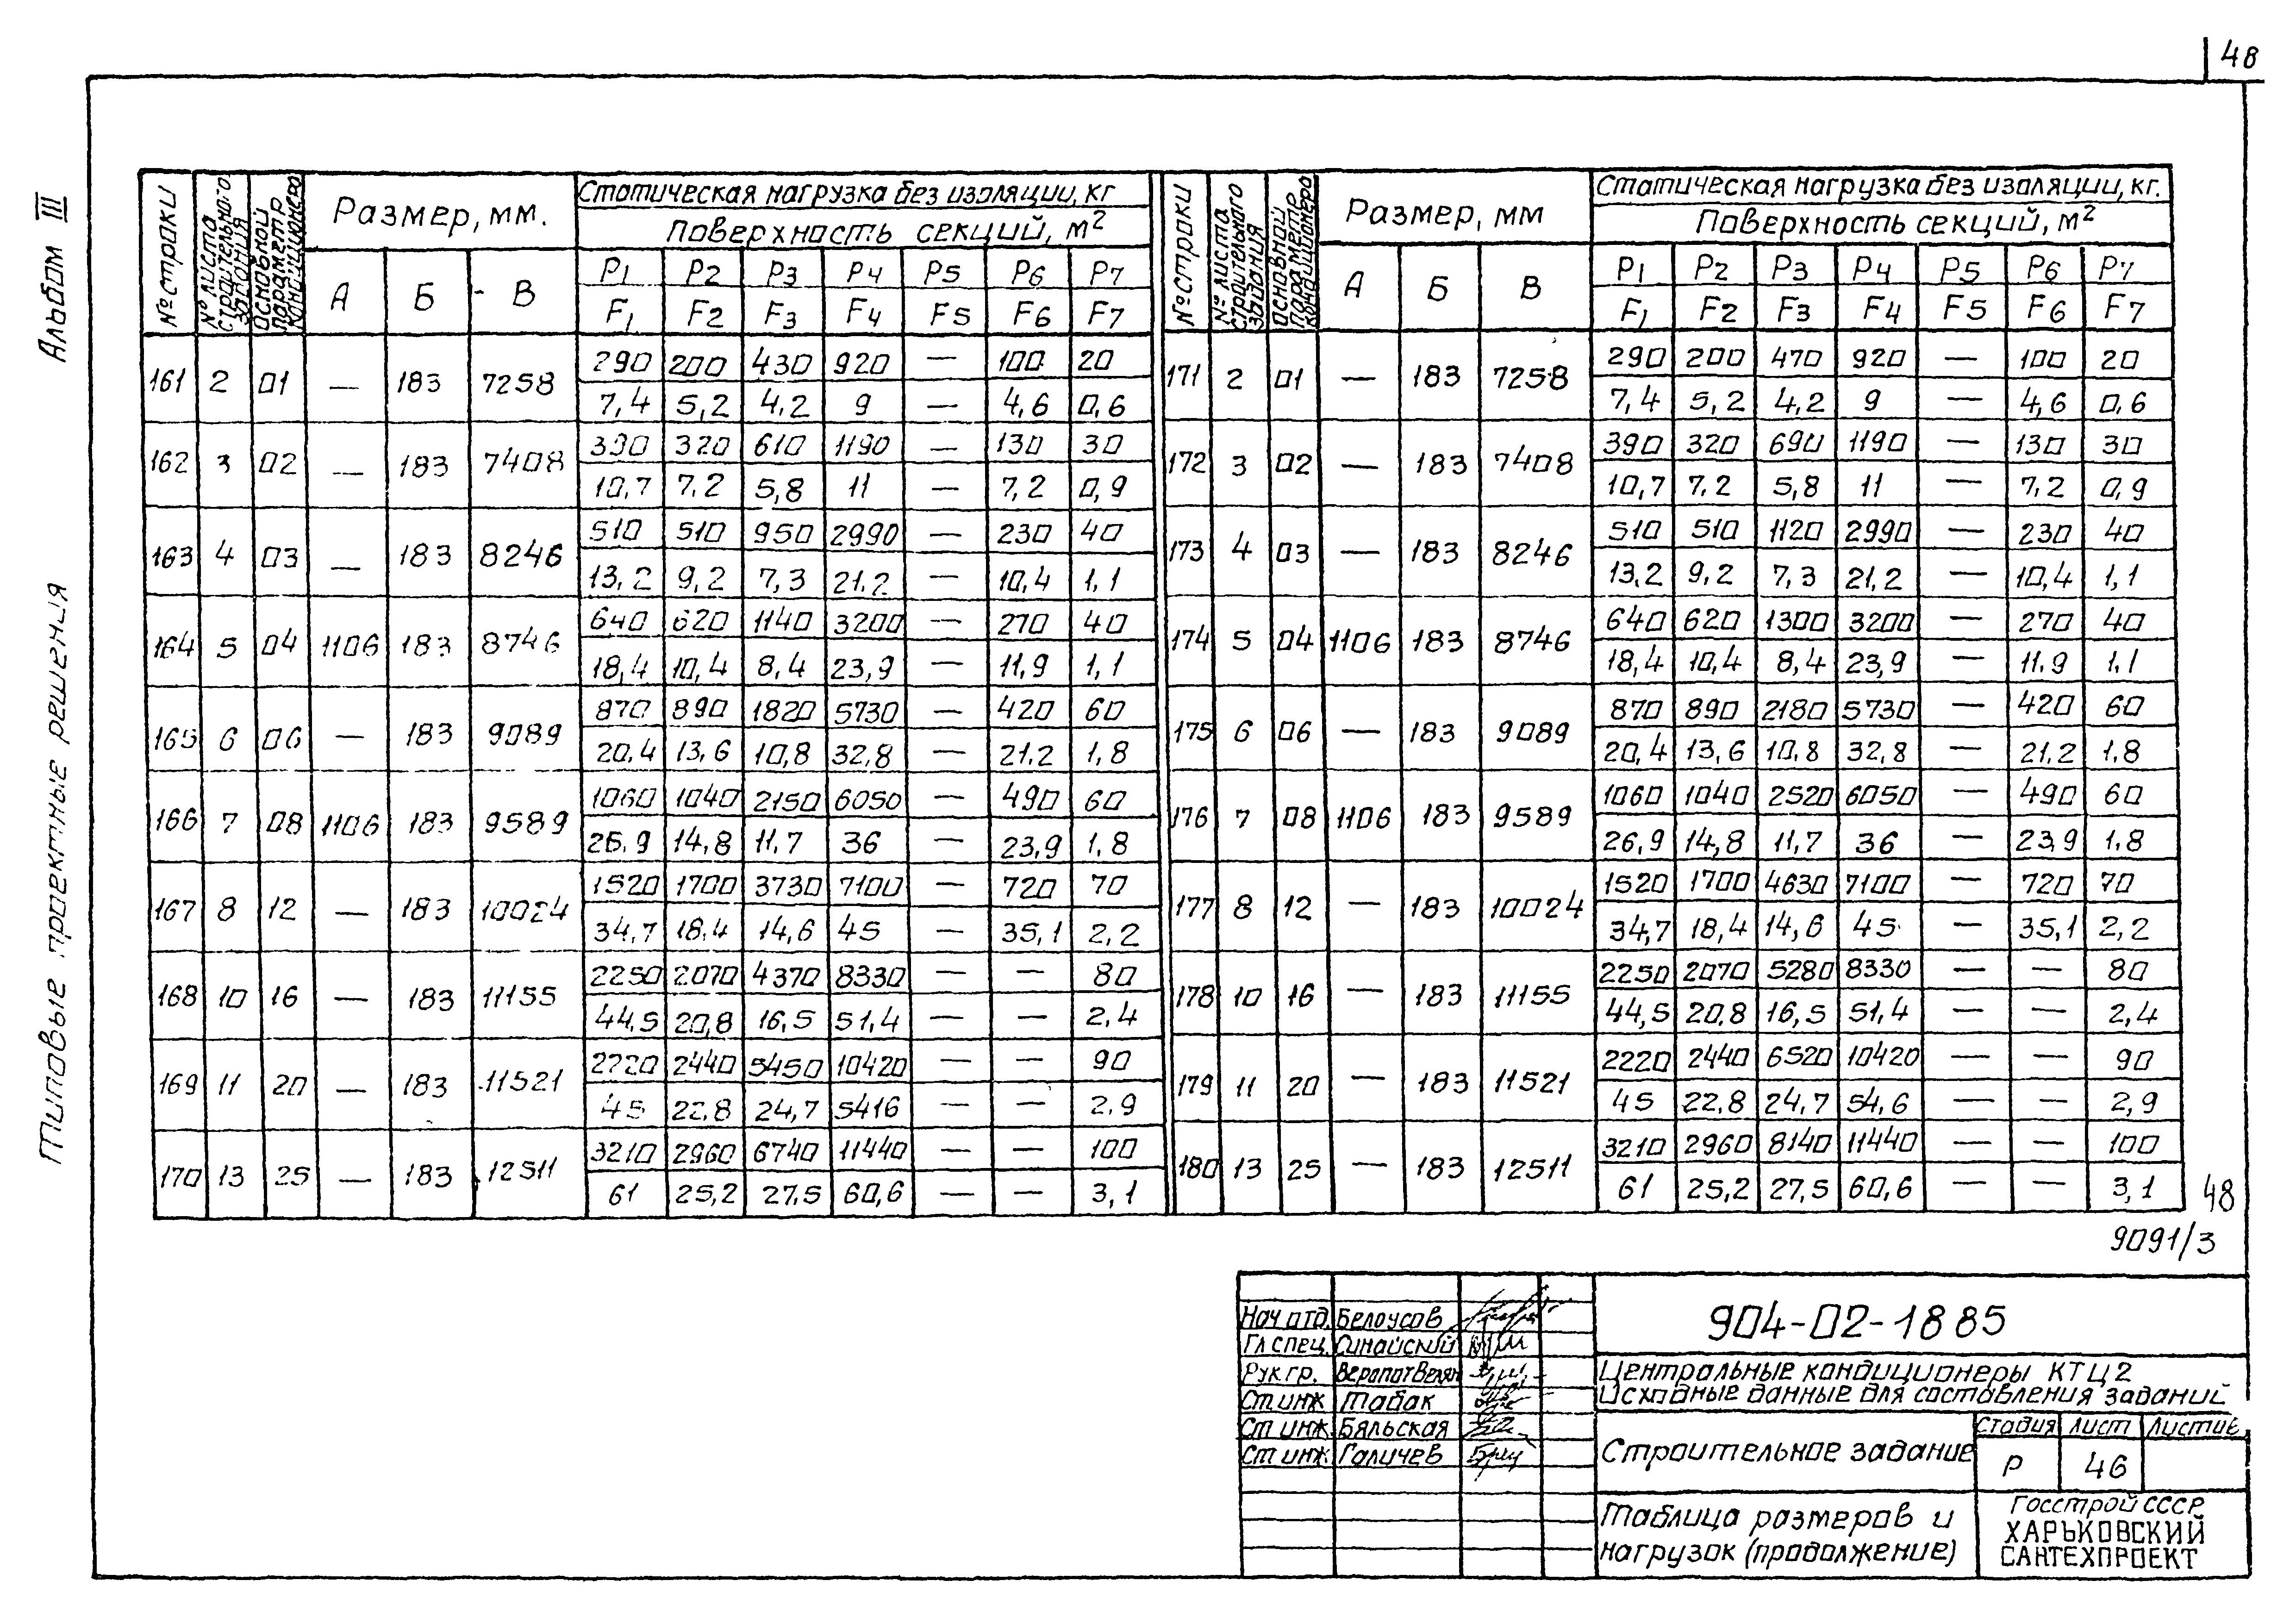 48
Альбом III
Типовые проектные решения
№ строки | № листа строительного задания | Основной параметр кондиционера | Размер, мм. | Статическая нагрузка без изоляции, кг
Поверхность секций, м²
А | Б | В | P1 | P2 | P3 | P4 | P5 | P6 | P7
F1 | F2 | F3 | F4 | F5 | F6 | F7
161 | 2 | 01 | — | 183 | 7258 | 290 | 200 | 430 | 920 | — | 100 | 20
7,4 | 5,2 | 4,2 | 9 | — | 4,6 | 0,6
162 | 3 | 02 | — | 183 | 7408 | 390 | 320 | 610 | 1190 | — | 130 | 30
10,7 | 7,2 | 5,8 | 11 | — | 7,2 | 0,9
163 | 4 | 03 | — | 183 | 8246 | 510 | 510 | 950 | 2990 | — | 230 | 40
13,2 | 9,2 | 7,3 | 21,2 | — | 10,4 | 1,1
164 | 5 | 04 | 1106 | 183 | 8746 | 640 | 620 | 1140 | 3200 | — | 270 | 40
18,4 | 10,4 | 8,4 | 23,9 | — | 11,9 | 1,1
165 | 6 | 06 | — | 183 | 9089 | 870 | 890 | 1820 | 5730 | — | 420 | 60
20,4 | 13,6 | 10,8 | 32,8 | — | 21,2 | 1,8
166 | 7 | 08 | 1106 | 183 | 9589 | 1060 | 1040 | 2150 | 6050 | — | 490 | 60
26,9 | 14,8 | 11,7 | 36 | — | 23,9 | 1,8
167 | 8 | 12 | — | 183 | 10024 | 1520 | 1700 | 3730 | 7100 | — | 720 | 70
34,7 | 18,4 | 14,6 | 45 | — | 35,1 | 2,2
168 | 10 | 16 | — | 183 | 11155 | 2250 | 2070 | 4370 | 8330 | — | — | 80
44,5 | 20,8 | 16,5 | 51,4 | — | — | 2,4
169 | 11 | 20 | — | 183 | 11521 | 2220 | 2440 | 5450 | 10420 | — | — | 90
45 | 22,8 | 24,7 | 5416 | — | — | 2,9
170 | 13 | 25 | — | 183 | 12511 | 3210 | 2960 | 6740 | 11440 | — | — | 100
61 | 25,2 | 27,5 | 60,6 | — | — | 3,1
№ строки | № листа строительного задания | Основной параметр кондиционера | Размер, мм | Статическая нагрузка без изоляции, кг.
Поверхность секций, м²
А | Б | В | P1 | P2 | P3 | P4 | P5 | P6 | P7
F1 | F2 | F3 | F4 | F5 | F6 | F7
171 | 2 | 01 | — | 183 | 7258 | 290 | 200 | 470 | 920 | — | 100 | 20
7,4 | 5,2 | 4,2 | 9 | — | 4,6 | 0,6
172 | 3 | 02 | — | 183 | 7408 | 390 | 320 | 690 | 1190 | — | 130 | 30
10,7 | 7,2 | 5,8 | 11 | — | 7,2 | 0,9
173 | 4 | 03 | — | 183 | 8246 | 510 | 510 | 1120 | 2990 | — | 230 | 40
13,2 | 9,2 | 7,3 | 21,2 | — | 10,4 | 1,1
174 | 5 | 04 | 1106 | 183 | 8746 | 640 | 620 | 1300 | 3200 | — | 270 | 40
18,4 | 10,4 | 8,4 | 23,9 | — | 11,9 | 1,1
175 | 6 | 06 | — | 183 | 9089 | 870 | 890 | 2180 | 5730 | — | 420 | 60
20,4 | 13,6 | 10,8 | 32,8 | — | 21,2 | 1,8
176 | 7 | 08 | 1106 | 183 | 9589 | 1060 | 1040 | 2520 | 6050 | — | 490 | 60
26,9 | 14,8 | 11,7 | 36 | — | 23,9 | 1,8
177 | 8 | 12 | — | 183 | 10024 | 1520 | 1700 | 4630 | 7100 | — | 720 | 70
34,7 | 18,4 | 14,6 | 45 | — | 35,1 | 2,2
178 | 10 | 16 | — | 183 | 11155 | 2250 | 2070 | 5280 | 8330 | — | — | 80
44,5 | 20,8 | 16,5 | 51,4 | — | — | 2,4
179 | 11 | 20 | — | 183 | 11521 | 2220 | 2440 | 6520 | 10420 | — | — | 90
45 | 22,8 | 24,7 | 54,6 | — | — | 2,9
180 | 13 | 25 | — | 183 | 12511 | 3210 | 2960 | 8140 | 11440 | — | — | 100
61 | 25,2 | 27,5 | 60,6 | — | — | 3,1
48
9091/3
Нач отд. Белоусов
Гл спец. Синайский
Рук гр.
Ст инж Табак
Ст инж. Бяльская
Ст инж. Галичев
904-02-1885
Центральные кондиционеры КТЦ2
Исходные данные для составления заданий
Строительное задание
Стадия | Лист | Листов
Р | 46
Таблица размеров и
нагрузок (продолжение)
Госстрой СССР
ХАРЬКОВСКИЙ
САНТЕХПРОЕКТ